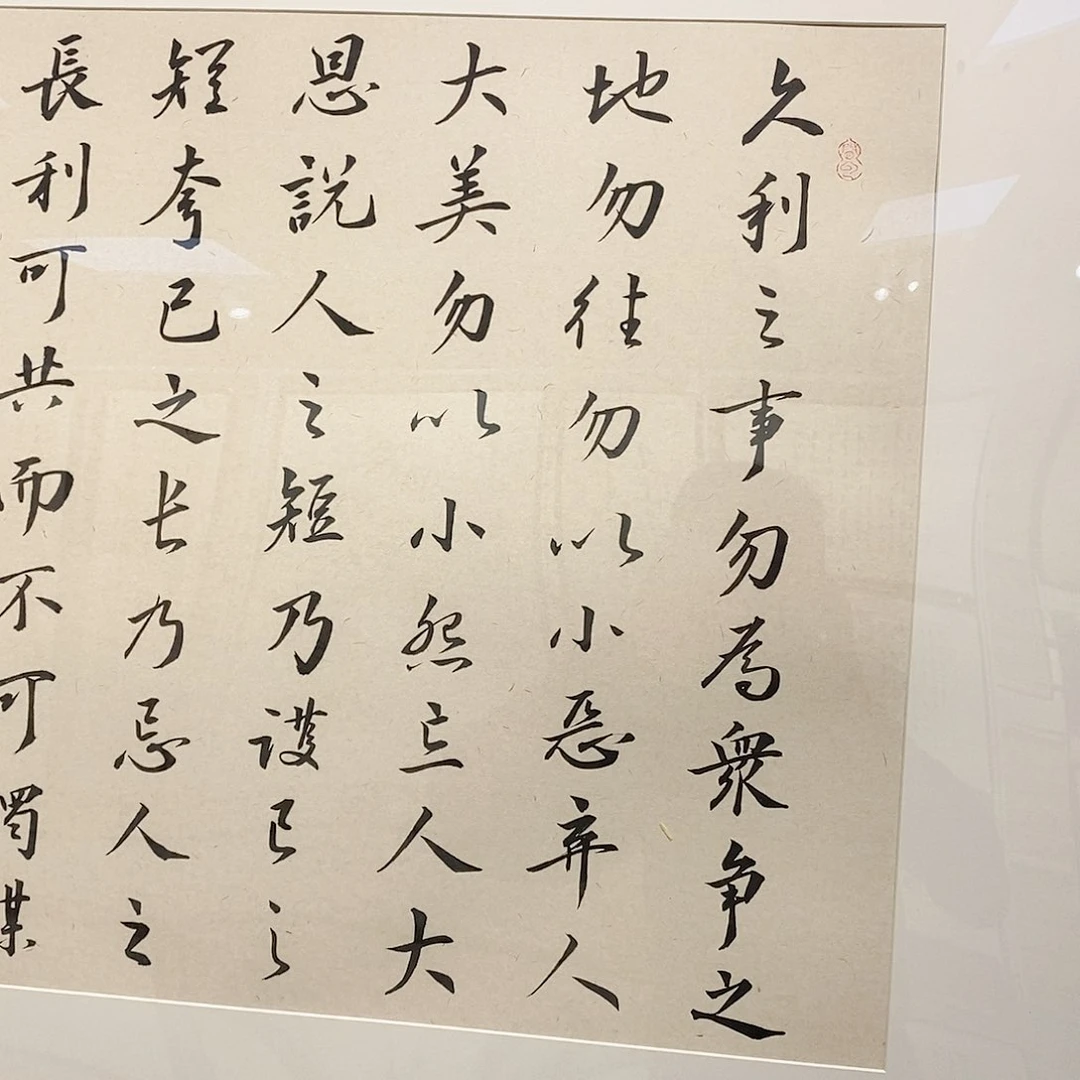 久利之事勿為衆争之
地勿往勿以小惡弃人
大美勿以小怨忘人大
恩説人之短乃護己之
短夸己之长乃忌人之
長利可共而不可獨謀